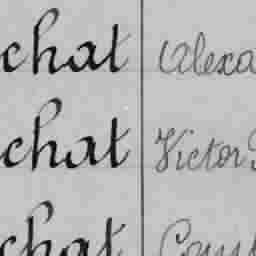 chat Alexa
chat Victor
chat